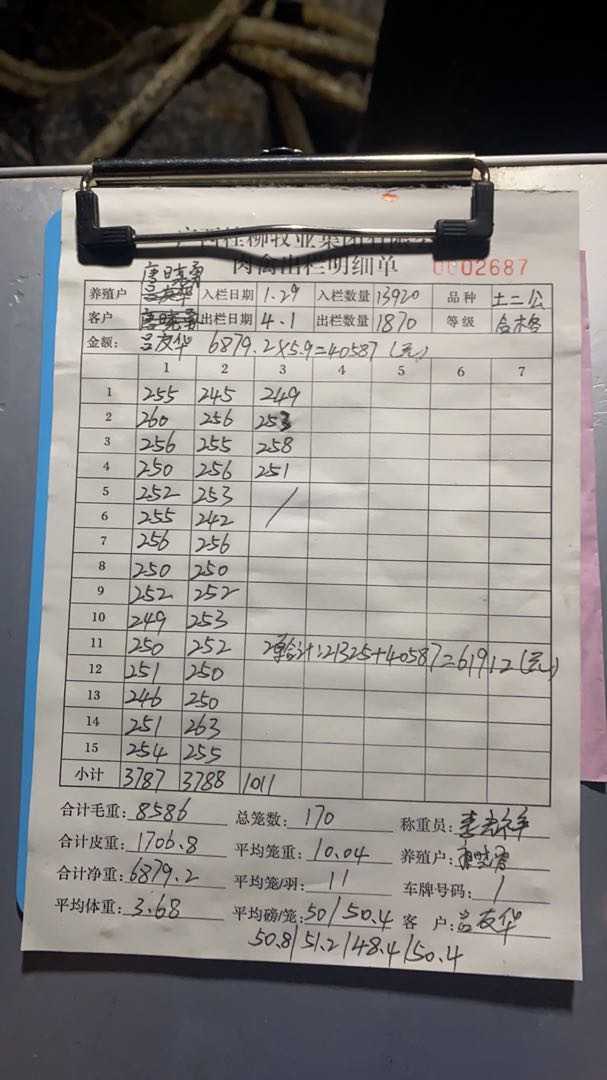 广西桂柳牧业集团有限
肉禽出栏明细单 0002687
唐晓勇
养殖户 吕友华 入栏日期 1.29 入栏数量 13920 品种 土二公
客户 唐晓勇 出栏日期 4.1 出栏数量 1870 等级 合格
金额: 吕友华 6879.2×5.9=40587(元)
1 2 3 4 5 6 7
1 255 245 249
2 260 256 253
3 256 255 258
4 250 256 251
5 252 253 /
6 255 242
7 256 256
8 250 250
9 252 252
10 249 253
11 250 252 2单合计:21325+40587=61912(元)
12 251 250
13 246 250
14 251 263
15 254 255
小计 3787 3788 1011
合计毛重: 8586 总笼数: 170 称重员:
合计皮重: 1706.8 平均笼重: 10.04 养殖户: 唐晓勇
合计净重: 6879.2 平均笼/羽: 11 车牌号码: 1
平均体重: 3.68 平均磅/笼: 50/50.4 客户: 吕友华
50.8/51.2/48.4/50.4